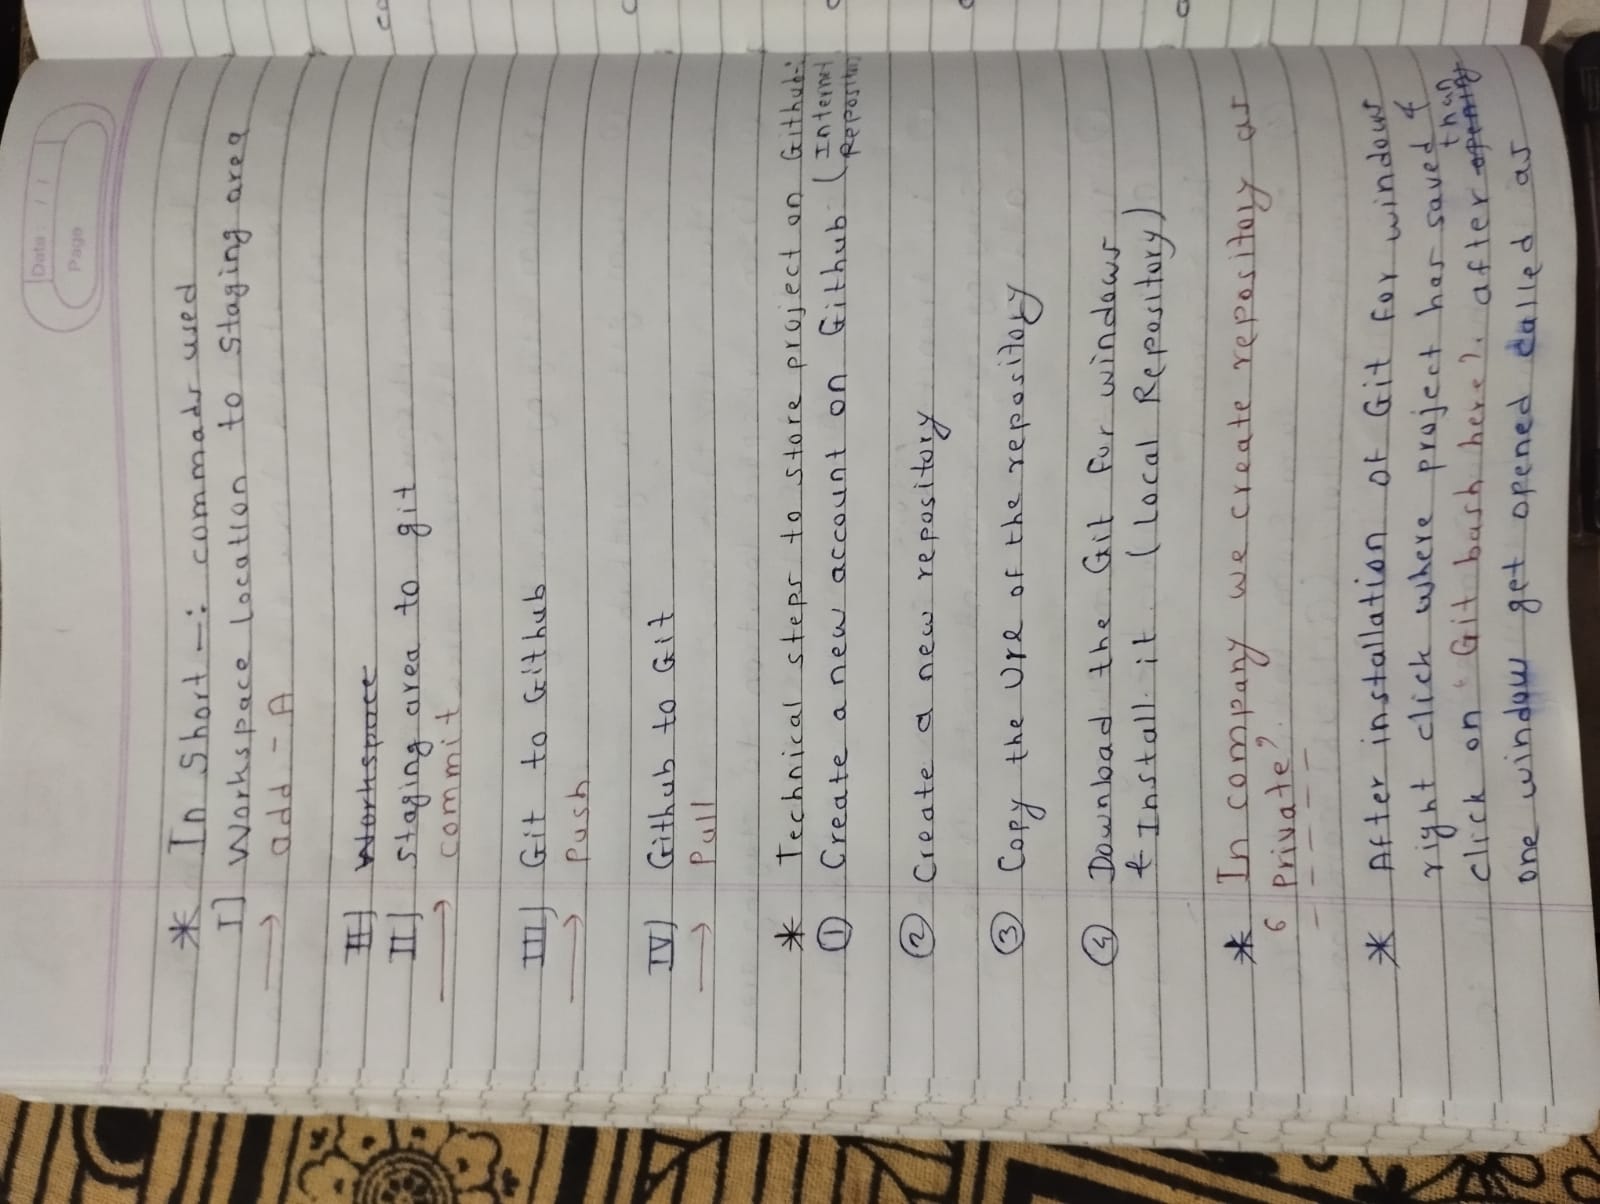 Date : / /
Page
* In Short -: commads used
I] Workspace location to Staging area
→ add - A
II] Workspace
II] staging area to git
→ commit
III] Git to Github
→ Push
IV) Github to Git
→ Pull
* Technical steps to store project on Github-:
① Create a new account on Github (Internet
② Create a new repository
③ Copy the Url of the repository
④ Download the Git for windows
& Install it (Local Repository)
* In company we create repository as
‘private’.
* After installation of Git for windows
right click where project has saved &
click on ‘Git bash here’. after opening than
one window get opened called as